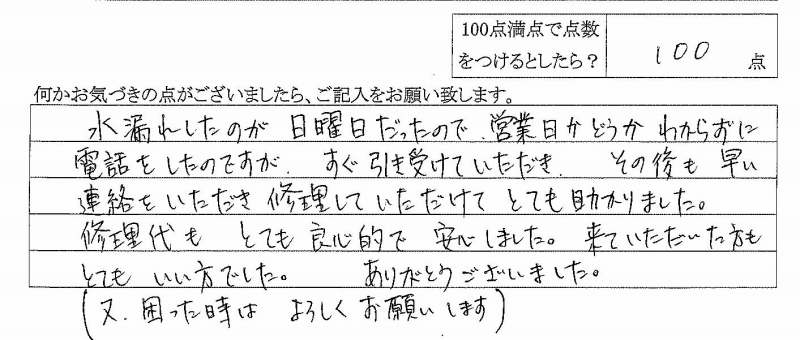 100点満点で点数
をつけるとしたら？
100 点
何かお気づきの点がございましたら、ご記入をお願い致します。
水漏れしたのが 日曜日だったので、営業日かどうか わからずに
電話をしたのですが、すぐ引き受けていただき、その後も 早い
連絡をいただき 修理していただけて とても助かりました。
修理代も とても良心的で 安心しました。来ていただいた方も
とても いい方でした。 ありがとうございました。
(又、困った時は よろしくお願いします)